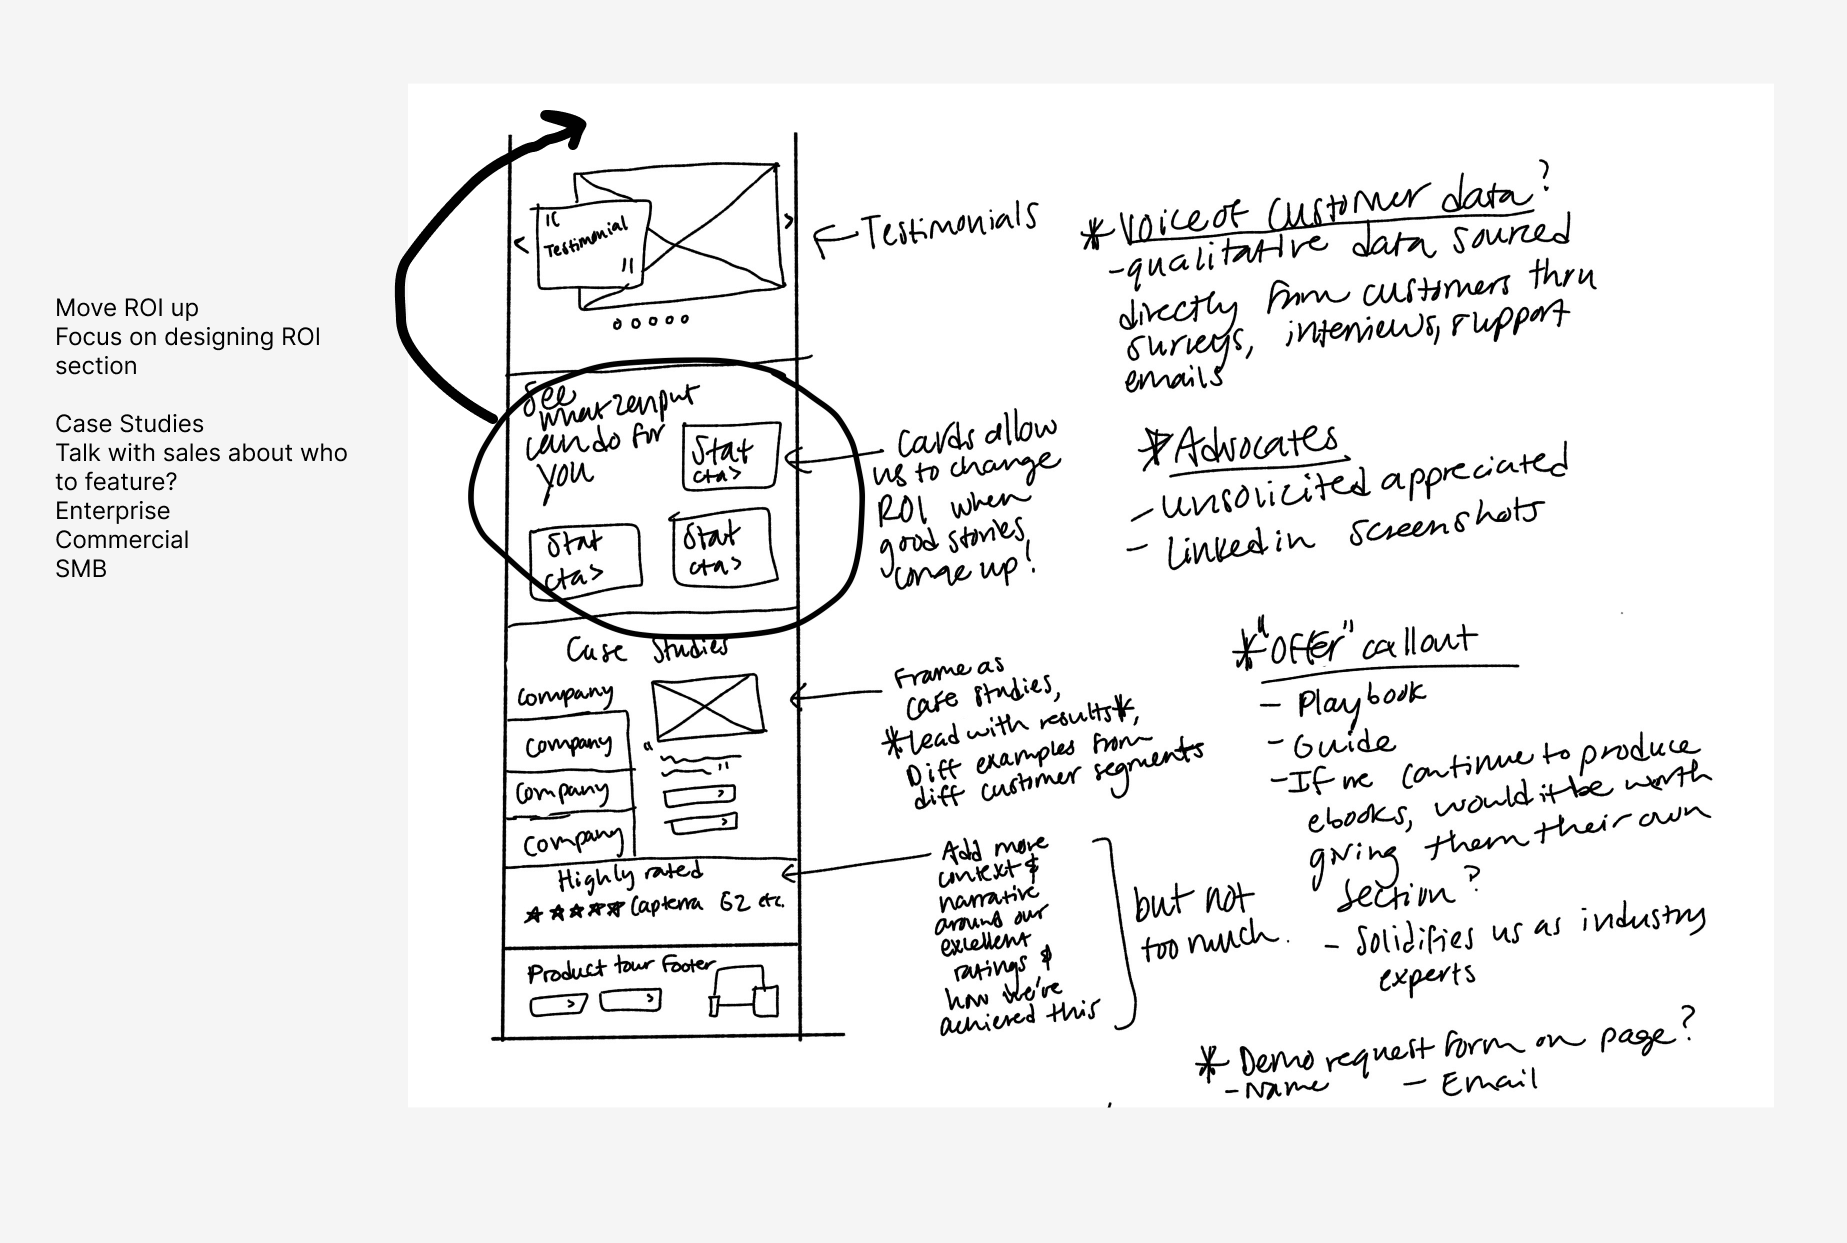 Move ROI up
Focus on designing ROI
section
Case Studies
Talk with sales about who
to feature?
Enterprise
Commercial
SMB
"
Testimonial
"
<
>
See
what zenput
can do for
you
Stat
cta>
Stat
cta>
Stat
cta>
Case Studies
Company
Company
Company
Company
"
"
>
>
Highly rated
★★★★★ Capterra G2 etc.
Product tour Footer
>
>
Testimonials
Cards allow
us to change
ROI when
good stories
come up!
Frame as
case studies,
*lead with results*,
Diff examples from
diff customer segments
Add more
context &
narrative
around our
excellent
ratings &
how we've
achieved this
but not
too much.
* Voice of customer data?
-qualitative data sourced
directly from customers thru
surveys, interviews, support
emails
* Advocates
- unsolicited appreciated
- Linkedin screenshots
* "Offer" callout
- Playbook
- Guide
- If we continue to produce
ebooks, would it be worth
giving them their own
section?
- Solidifies us as industry
experts
* Demo request form on page?
- Name - Email